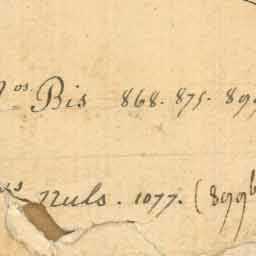 Nos Bis 868. 875. 899
nos nuls. 1077. (899b